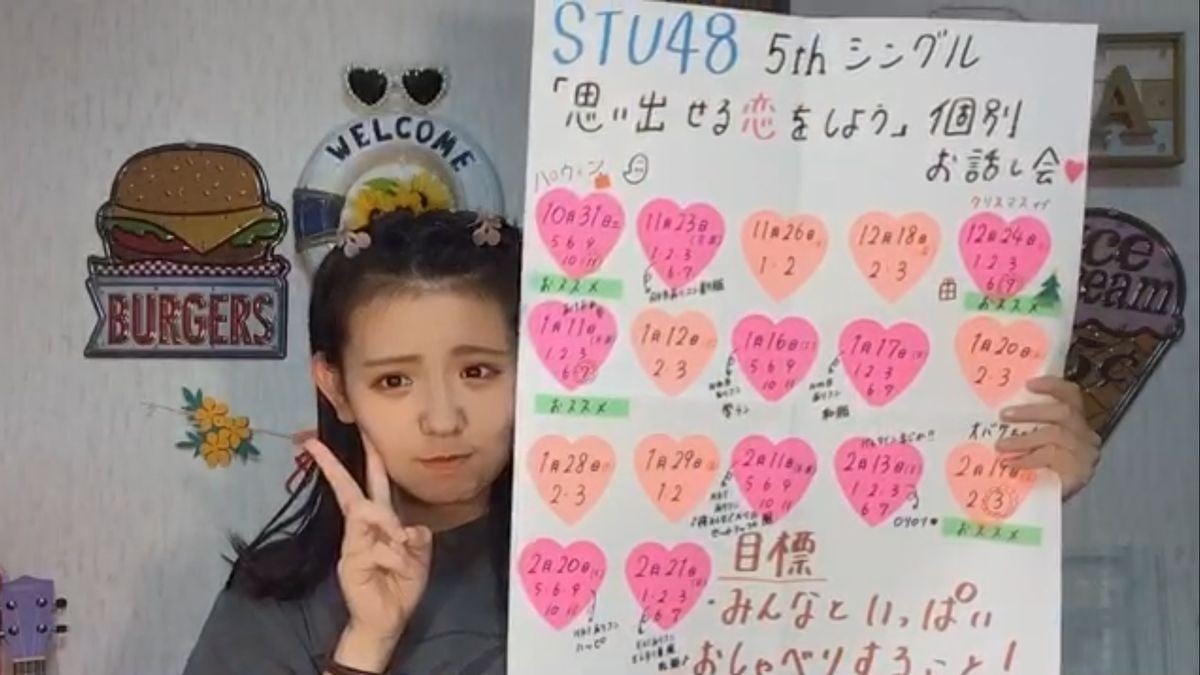 STU48 5th シングル
「思い出せる恋をしよう」個別
お話し会
ハロウィン
クリスマスイヴ
10月31日
5 6 9
10 11
おススメ
11月23日
1 2 3
6 7
11月26日
1 2
12月18日
2 3
12月24日
1 2 3
6 7
おススメ
1月11日
1 2 3
6 7
おススメ
1月12日
2 3
1月16日
5 6 9
10 11
1月17日
1 2 3
6 7
1月20日
2 3
1月28日
2 3
1月29日
1 2
2月11日
5 6 9
10 11
2月13日
1 2 3
6 7
2月19日
2 3
おススメ
2月20日
5 6 9
10 11
ハッピ
2月21日
1 2 3
6 7
目標
・みんなといっぱい
おしゃべりすること!
WELCOME
BURGERS
A
Ice
Cream
5¢